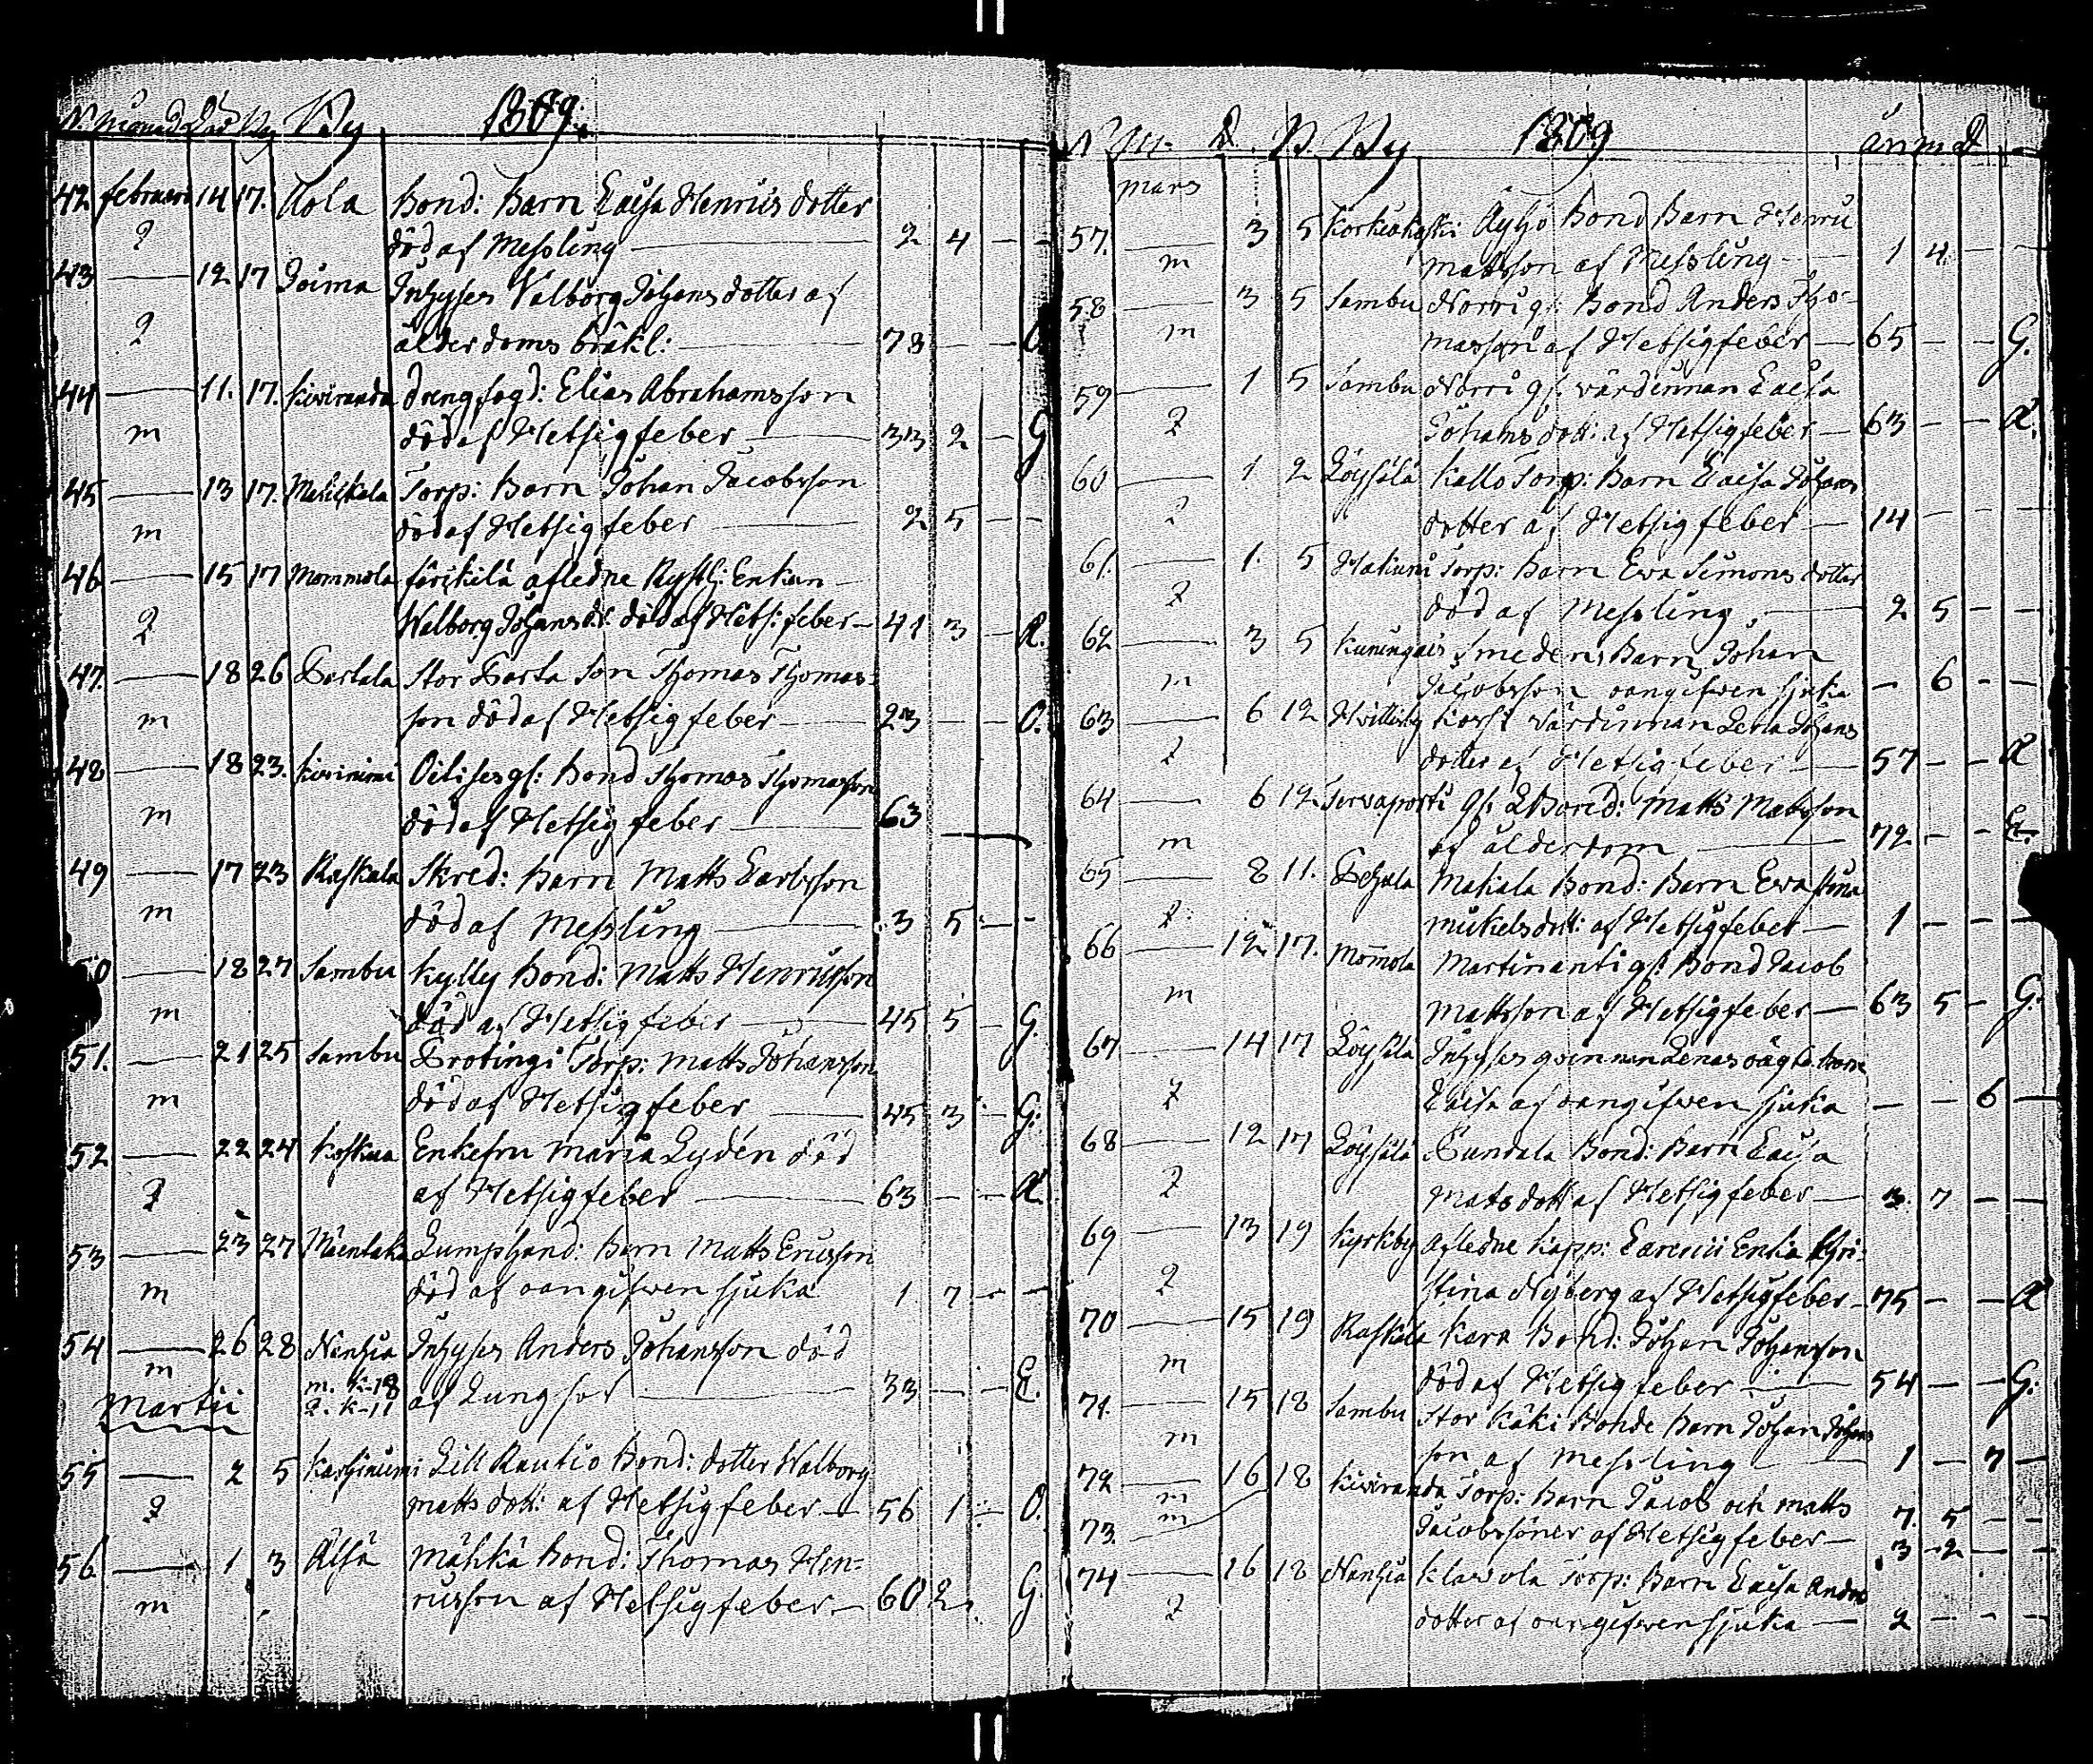 N. månad Död By 1809.
42. februari 14 17. Uola Bond: Barn Caisa Henrics dotter
Q död af Messling 2 4 - -
43 — 12 17 Joima Inhyses Walborg Johans dotter af
Q ålderdoms bräkl: 78 - -
44 — 11. 17. Kiviranda drengfogd: Elias Abrahamsson
m död af Hetsigfeber 33 2 - G
45 — 13 17. Torp: Barn Johan Jacobsson
m död af Hetsigfeber 2 5 - -
46 — 15 17 Mommola afledne Enkan
Q Walborg Johansd: död af Hets: feber 41 3 - A.
47. — 18 26 Partala Stor Parta Son Thomas Thomas-
m son död af Hetsigfeber 23 - - O.
48 — 18 23. Kivinimi gl: Bond Thomas Thomasson
m död af Hetsig feber 63
49 — 17 23 Raskala Skred: Barn Matts Carlsson
m död af Messling 3 5 - -
50 — 18 27 Sambu Kylly Bond: Matts Henricsson
m död af Hetsigfeber 45 5 - G.
51. — 21 25 Sambu Torp: Matts Johansson
m död af Hetsigfeber 45 3 - G.
52 — 22 24 Koskua Enkefru Maria Lydén död
Q af Hetsigfeber 63 - - A
53 — 23 27 Mäentaka Lumphand: Barn Matts Ericsson
m död af oangifwen sjuka 1 7 - -
54 — 26 28 Nanhia Inhyses Anders Johansson död
m m. K-18 af Lungsot 33 - - E.
Martii Q. K-11
55 — 2 5 Karhiniemi Lill Rautio Bond: dotter Walborg
Q Matts dott: af Hetsigfeber 56 1 - O.
56 — 1 3 Älsä Mähkä Bond: Thomas Hen-
m ricsson af Hetsigfeber 60 2 G
N M. D. B. By 1809 år m. d
mars
57. — 3 5 Korkiakoski Äyhö Bond Barn Henric
m Mattsson af Messling 1 4 - -
58 — 3 5 Sambu Norri gl: Bond Anders Tho-
m masson af Hetsigfeber 65 - - G.
59 — 1 5 Sambu Norri gl: värdinnan Caisa
Q Johans dott: af Hetsigfeber 63 - - A.
60 — 1 2 Löysälä Kallo Torp: Barn Caisa Johans
Q dotter af Hetsigfeber 14 - - -
61. — 1. 5 Hakuni Torp: Barn Ewa Simons dotter
Q död af Messling 2 5 - -
62 — 3 5 Kuningais Smedens Barn Johan
m Jacobsson oangifwen sjuka - 6 - -
63 — 6 12 Korsi värdinnan Lena Johans
Q dotter af Hetsigfeber 57 - - A
64 — 6 12 Tervaporti gl: Bond: Matts Matsson
m af ålderdom 72 - - E.
65 — 8 11. Pehula Makala Bond: Barn Ewa Stina
Q Mickels dott: af Hetsigfeber 1 - - -
66 — 12 17. Mom̄ola Martinanti gl: Bond Jacob
m Mattsson af Hetsigfeber 63 5 - G.
67 — 14 17 Löysälä Inhyses qvinnan Lenas oägta barn
Q Caisa af oangifwen sjuka - - 6 -
68 — 12 17 Löysälä Pundala Bond: Barn Caisa
Q Mats dott: af Hetsigfeber 3. 7 - -
69 — 13 19 Kyrkby afledne Kapp: Enka Chri-
Q stina Nyberg af Hetsigfeber 75 - - A
70 — 15 19 Raskala Kara Bond: Johan Johansson
m död af Hetsigfeber 54 - - G.
71. — 15 18 Sambu Stor Käki Bonde Barn Johan Johans
m son af Messling 1 - 7 -
72 — 16 18 Kiviranda Torp: Barn Jacob och Matts
m 7. 5 - -
73. m Jacobssöner af Hetsigfeber 3 2 - -
74 — 16 18 Nanhia Klavola Torp: Barn Caisa Anders
Q dotter af oangifwen sjuka 2 - - -